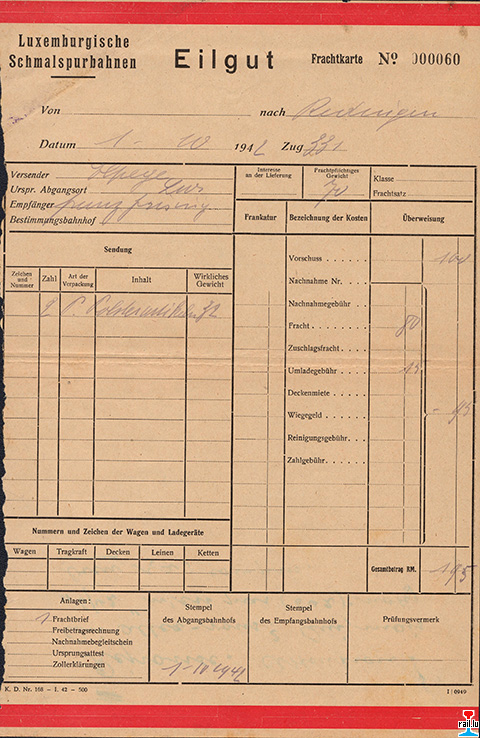 Luxemburgische
Schmalspurbahnen
Eilgut
Frachtkarte Nº 000060
Von nach Redingen
Datum 1 - 10 1942 Zug 331
Versender
Urspr. Abgangsort Lux
Empfänger
Bestimmungsbahnhof
Interesse an der Lieferung
Frachtpflichtiges Gewicht
70
Klasse
Frachtsatz
Sendung
Zeichen und Nummer
Zahl
Art der Verpackung
Inhalt
Wirkliches Gewicht
2 P.
Frankatur
Bezeichnung der Kosten
Überweisung
Vorschuss 100
Nachnahme Nr.
Nachnahmegebühr
Fracht 80
Zuschlagsfracht
Umladegebühr 15
Deckenmiete
Wiegegeld - 95
Reinigungsgebühr
Zahlgebühr
Gesamtbetrag RM. 195
Nummern und Zeichen der Wagen und Ladegeräte
Wagen Tragkraft Decken Leinen Ketten
Anlagen:
1 Frachtbrief
Freibetragsrechnung
Nachnahmebegleitschein
Ursprungsattest
Zollerklärungen
Stempel
des Abgangsbahnhofs
1-10 1942
Stempel
des Empfangsbahnhofs
Prüfungsvermerk
K. D. Nr. 168 - I. 42 - 500
I / 0949
rail.lu